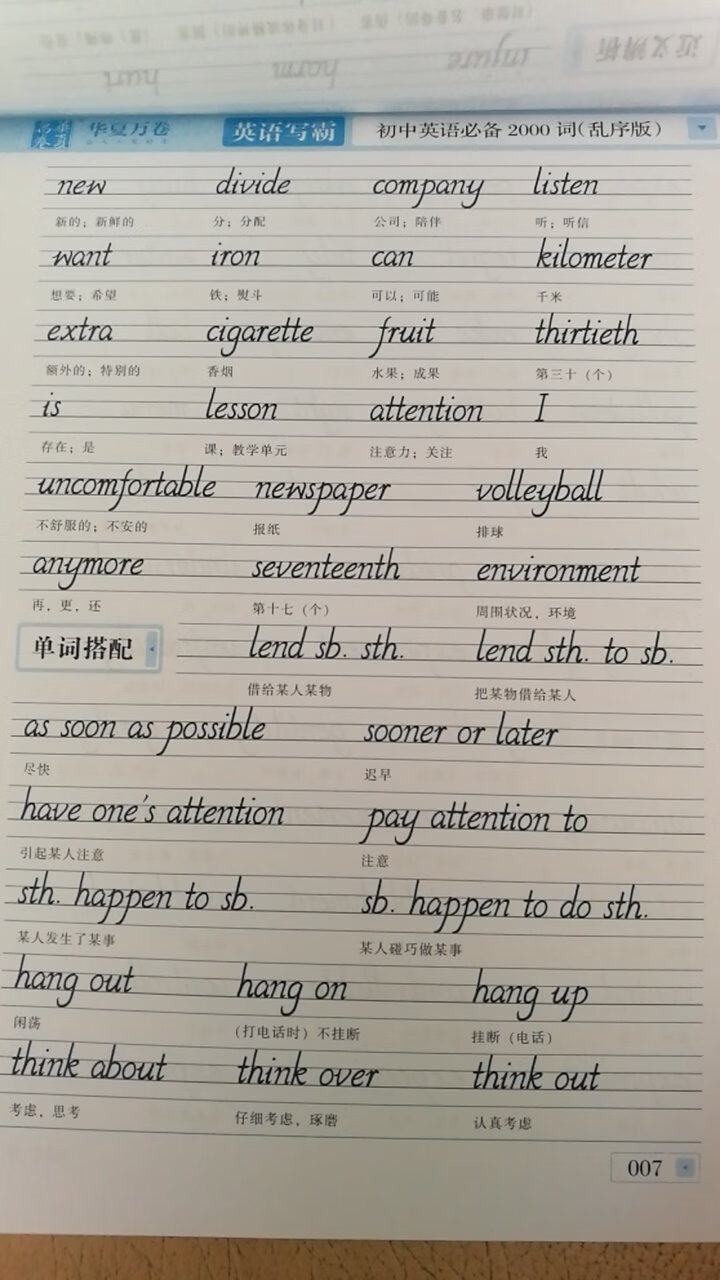 近义辨析
injure harm hurt
华夏万卷 英语写霸 初中英语必备 2000 词(乱序版)
new divide company listen
新的；新鲜的 分；分配 公司；陪伴 听；听信
want iron can kilometer
想要；希望 铁；熨斗 可以；可能 千米
extra cigarette fruit thirtieth
额外的；特别的 香烟 水果；成果 第三十（个）
is lesson attention I
存在；是 课；教学单元 注意力；关注 我
uncomfortable newspaper volleyball
不舒服的；不安的 报纸 排球
anymore seventeenth environment
再，更，还 第十七（个） 周围状况，环境
单词搭配 lend sb. sth. lend sth. to sb.
借给某人某物 把某物借给某人
as soon as possible sooner or later
尽快 迟早
have one's attention pay attention to
引起某人注意 注意
sth. happen to sb. sb. happen to do sth.
某人发生了某事 某人碰巧做某事
hang out hang on hang up
闲荡 （打电话时）不挂断 挂断（电话）
think about think over think out
考虑，思考 仔细考虑，琢磨 认真考虑
007